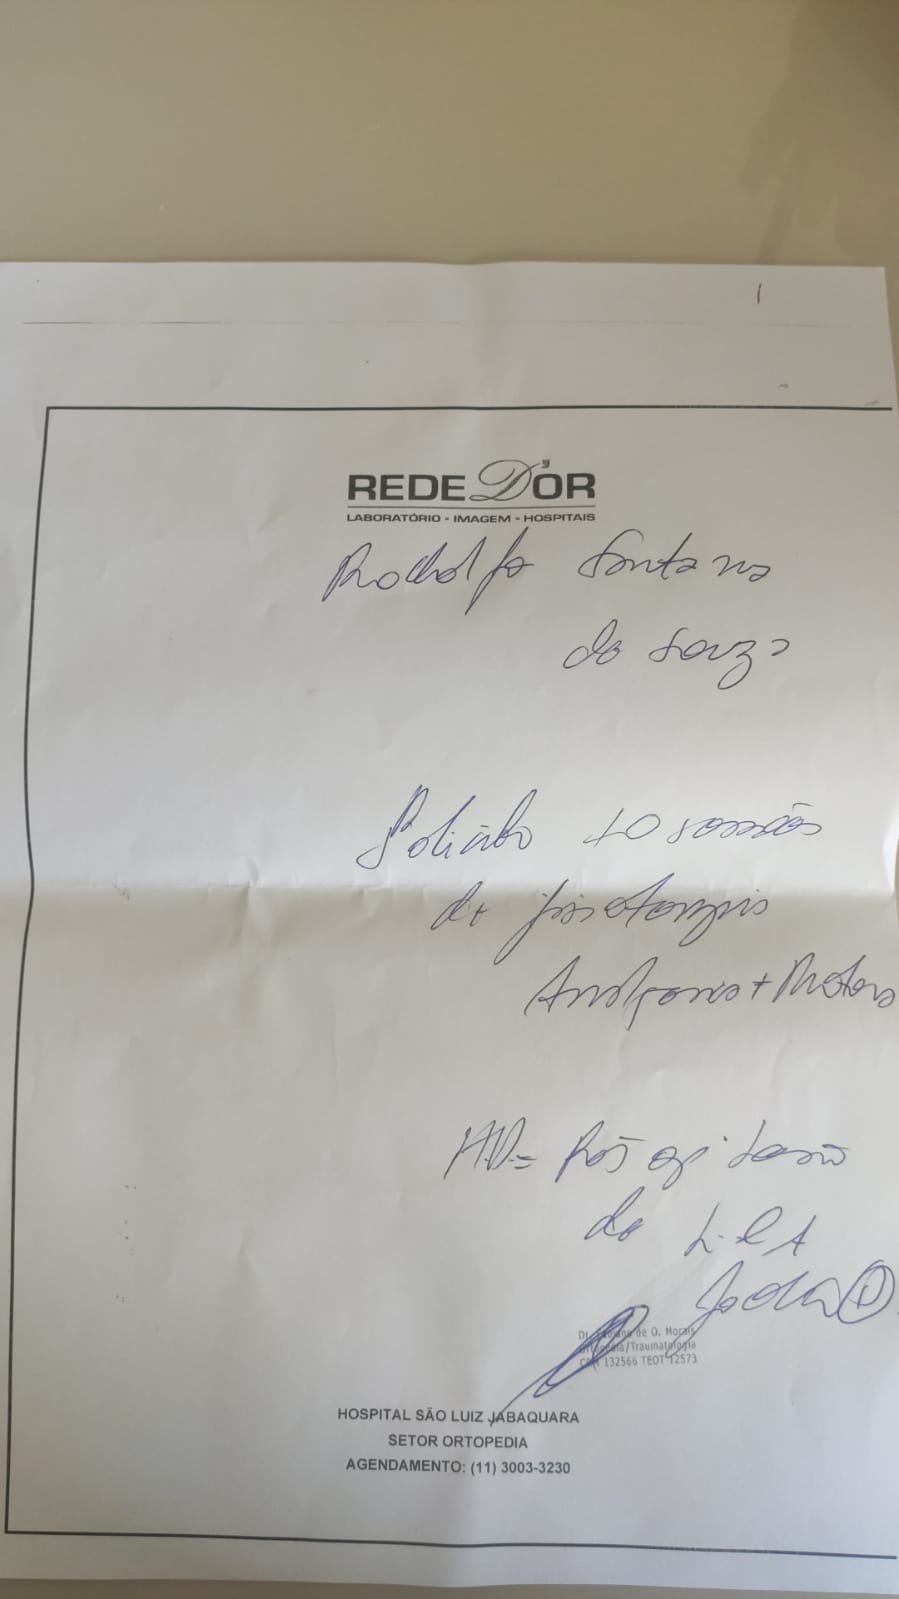 REDE D'OR
LABORATÓRIO - IMAGEM - HOSPITAIS
Rodholfo Santana
de Souza
Solicito 10 sessões
de fisioterapia
Analgesia + Motora
HD= Pós op
de LCA
Joelho D
Dr. Fabiano de O. Morais
Ortopedia/Traumatologia
CRM 132566 TEOT 12573
HOSPITAL SÃO LUIZ JABAQUARA
SETOR ORTOPEDIA
AGENDAMENTO: (11) 3003-3230